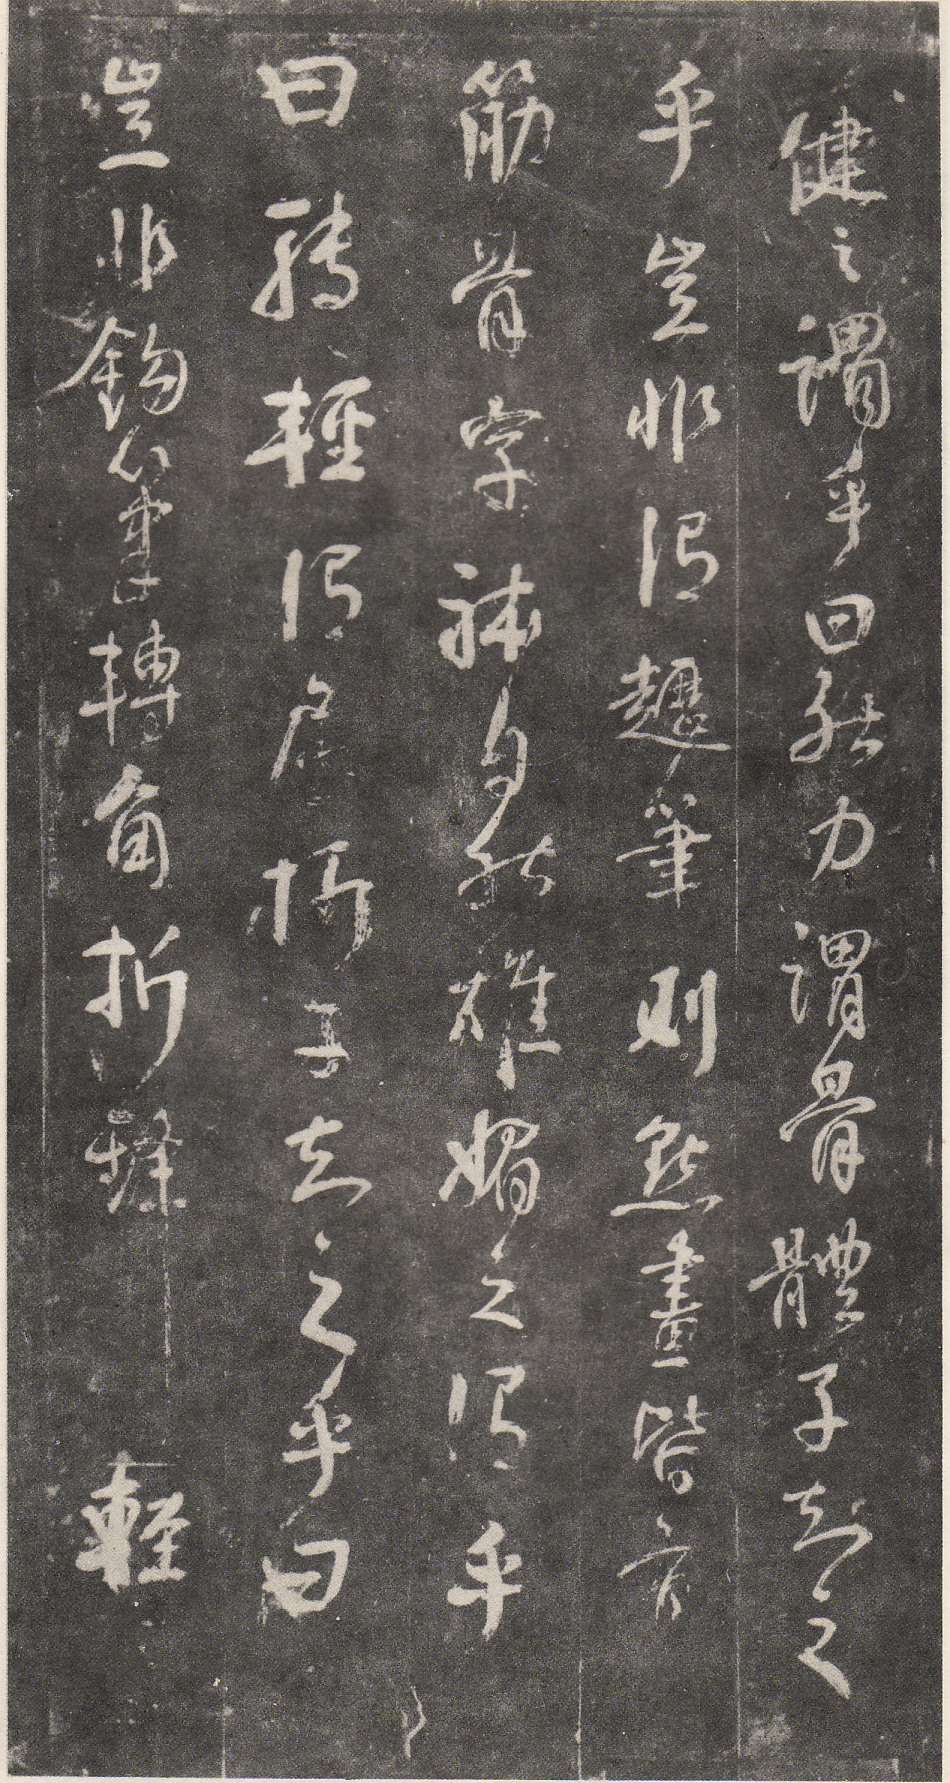 健之謂乎曰然力謂骨體子知之
乎豈非謂趯筆則點畫皆有
筋骨字體自然雄媚之謂乎
曰輕謂屈折子知之乎曰
豈非鈎筆轉角折鋒輕